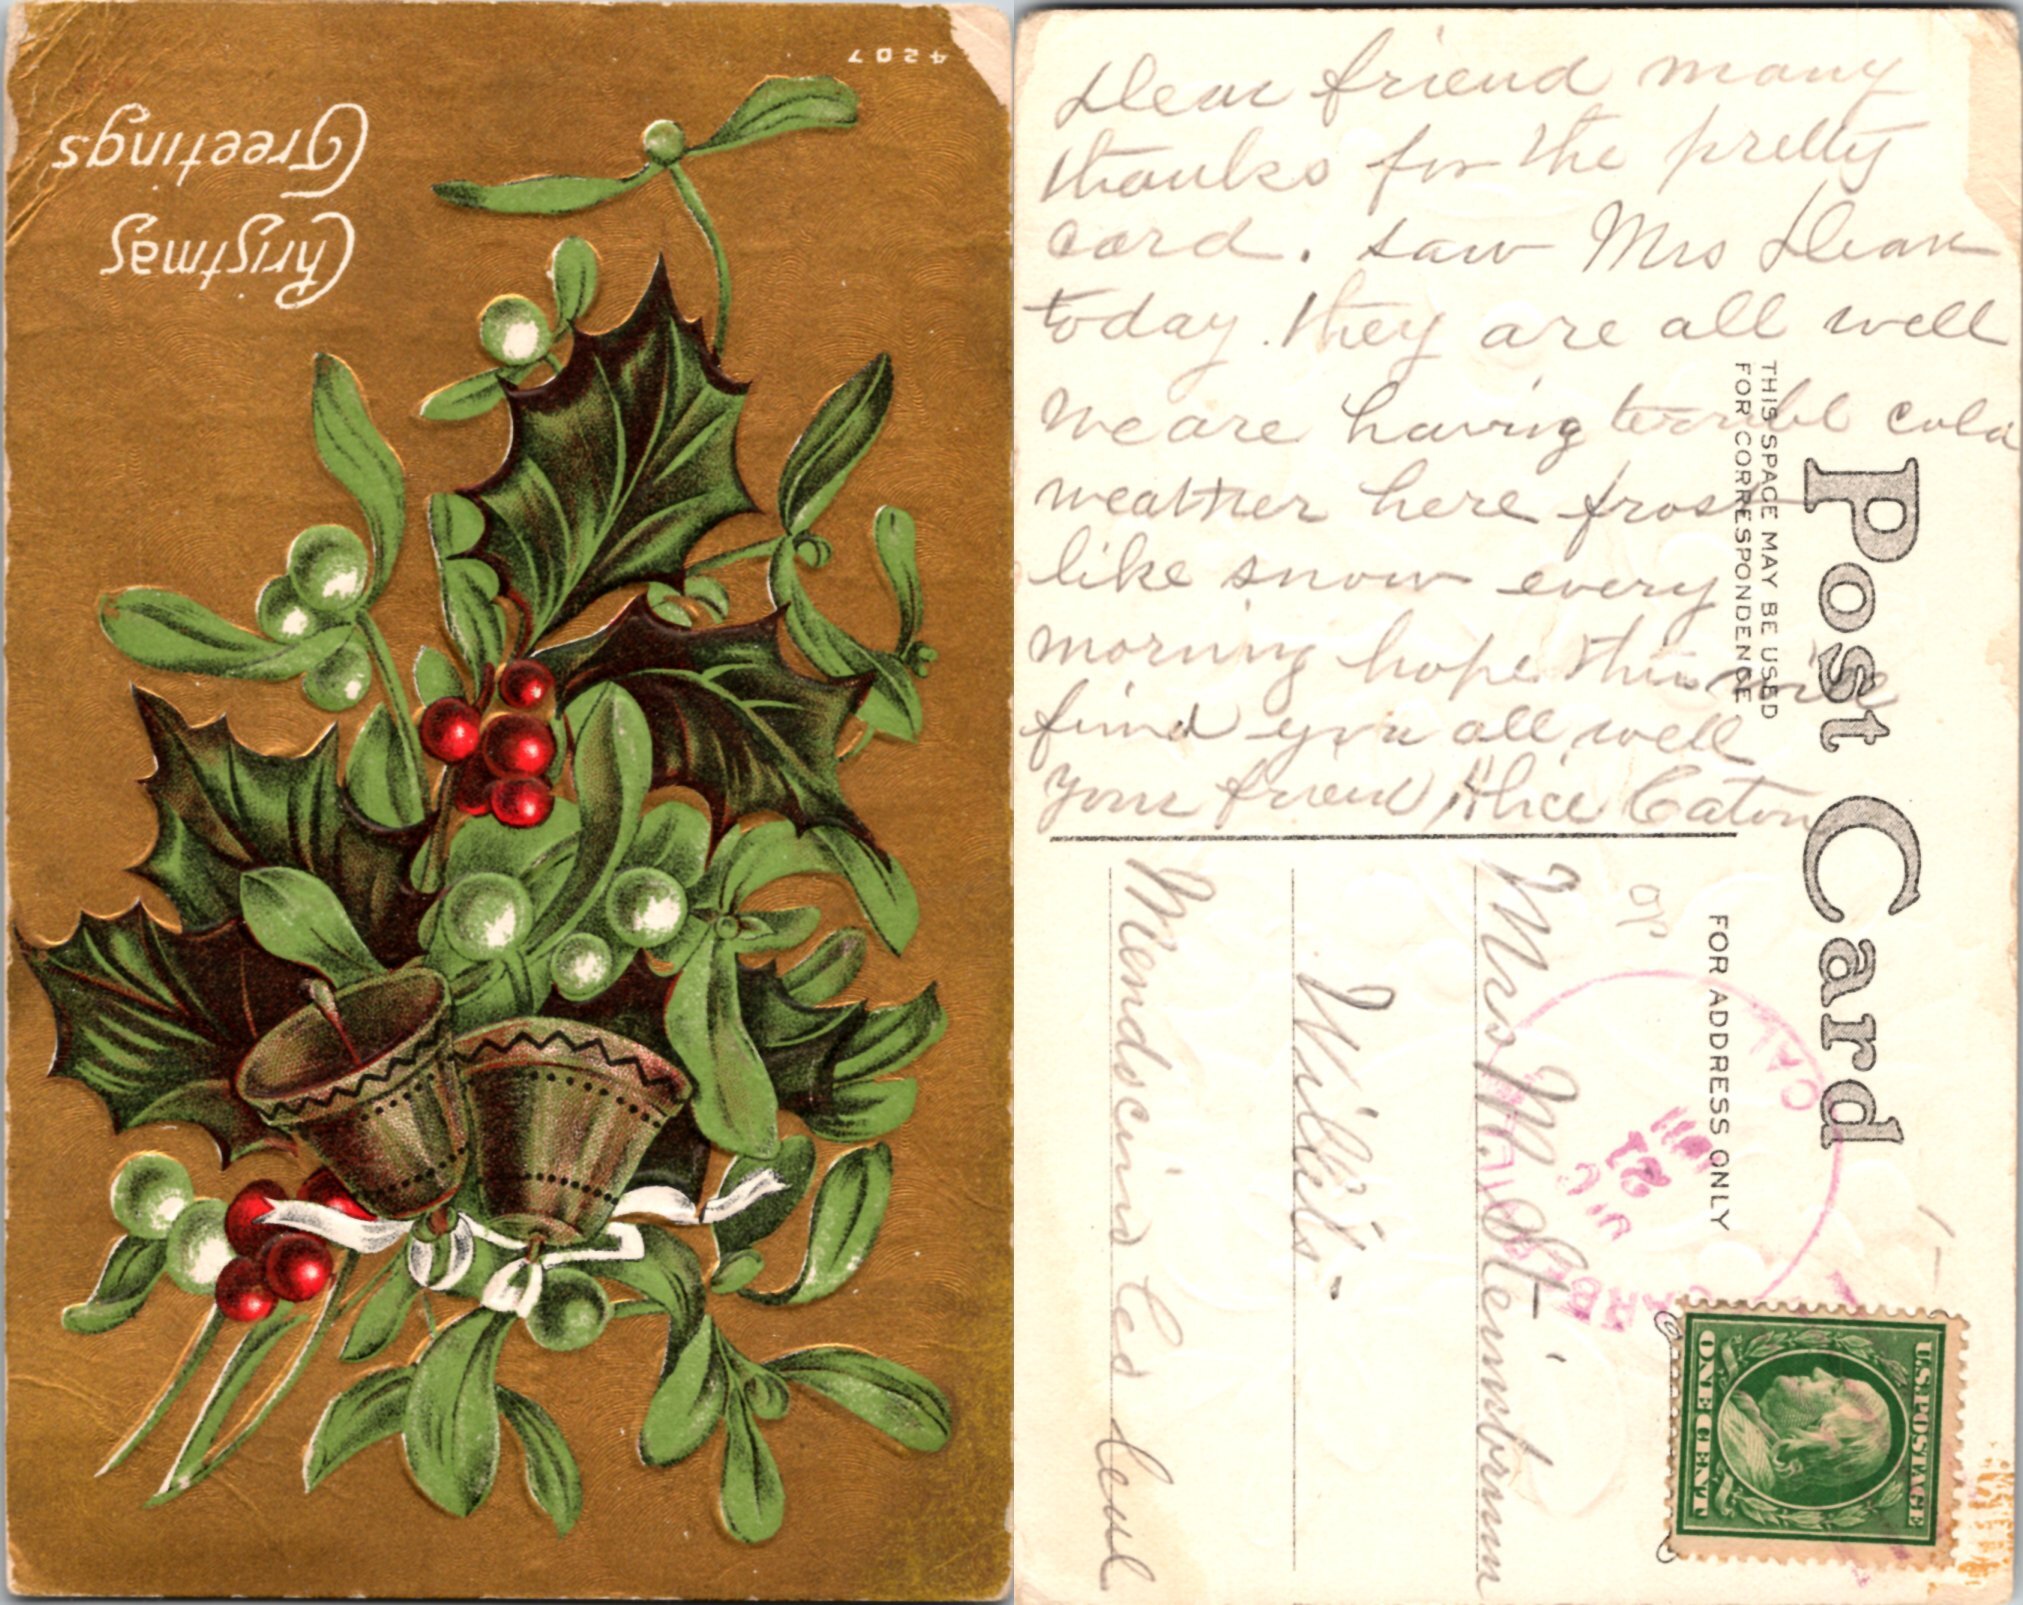 4207
Christmas
Greetings
Dear friend many
thanks for the pretty
card. saw Mrs Dean
today. they are all well
we are having terrible cold
weather here frost
like snow every
morning hope this will
find you all well
your friend Alice Eaton
Post Card
THIS SPACE MAY BE USED
FOR CORRESPONDENCE
FOR ADDRESS ONLY
Mrs M. Steinbrunn
Willits
Mendocino Co
CAL
21
U.S. POSTAGE
ONE CENT